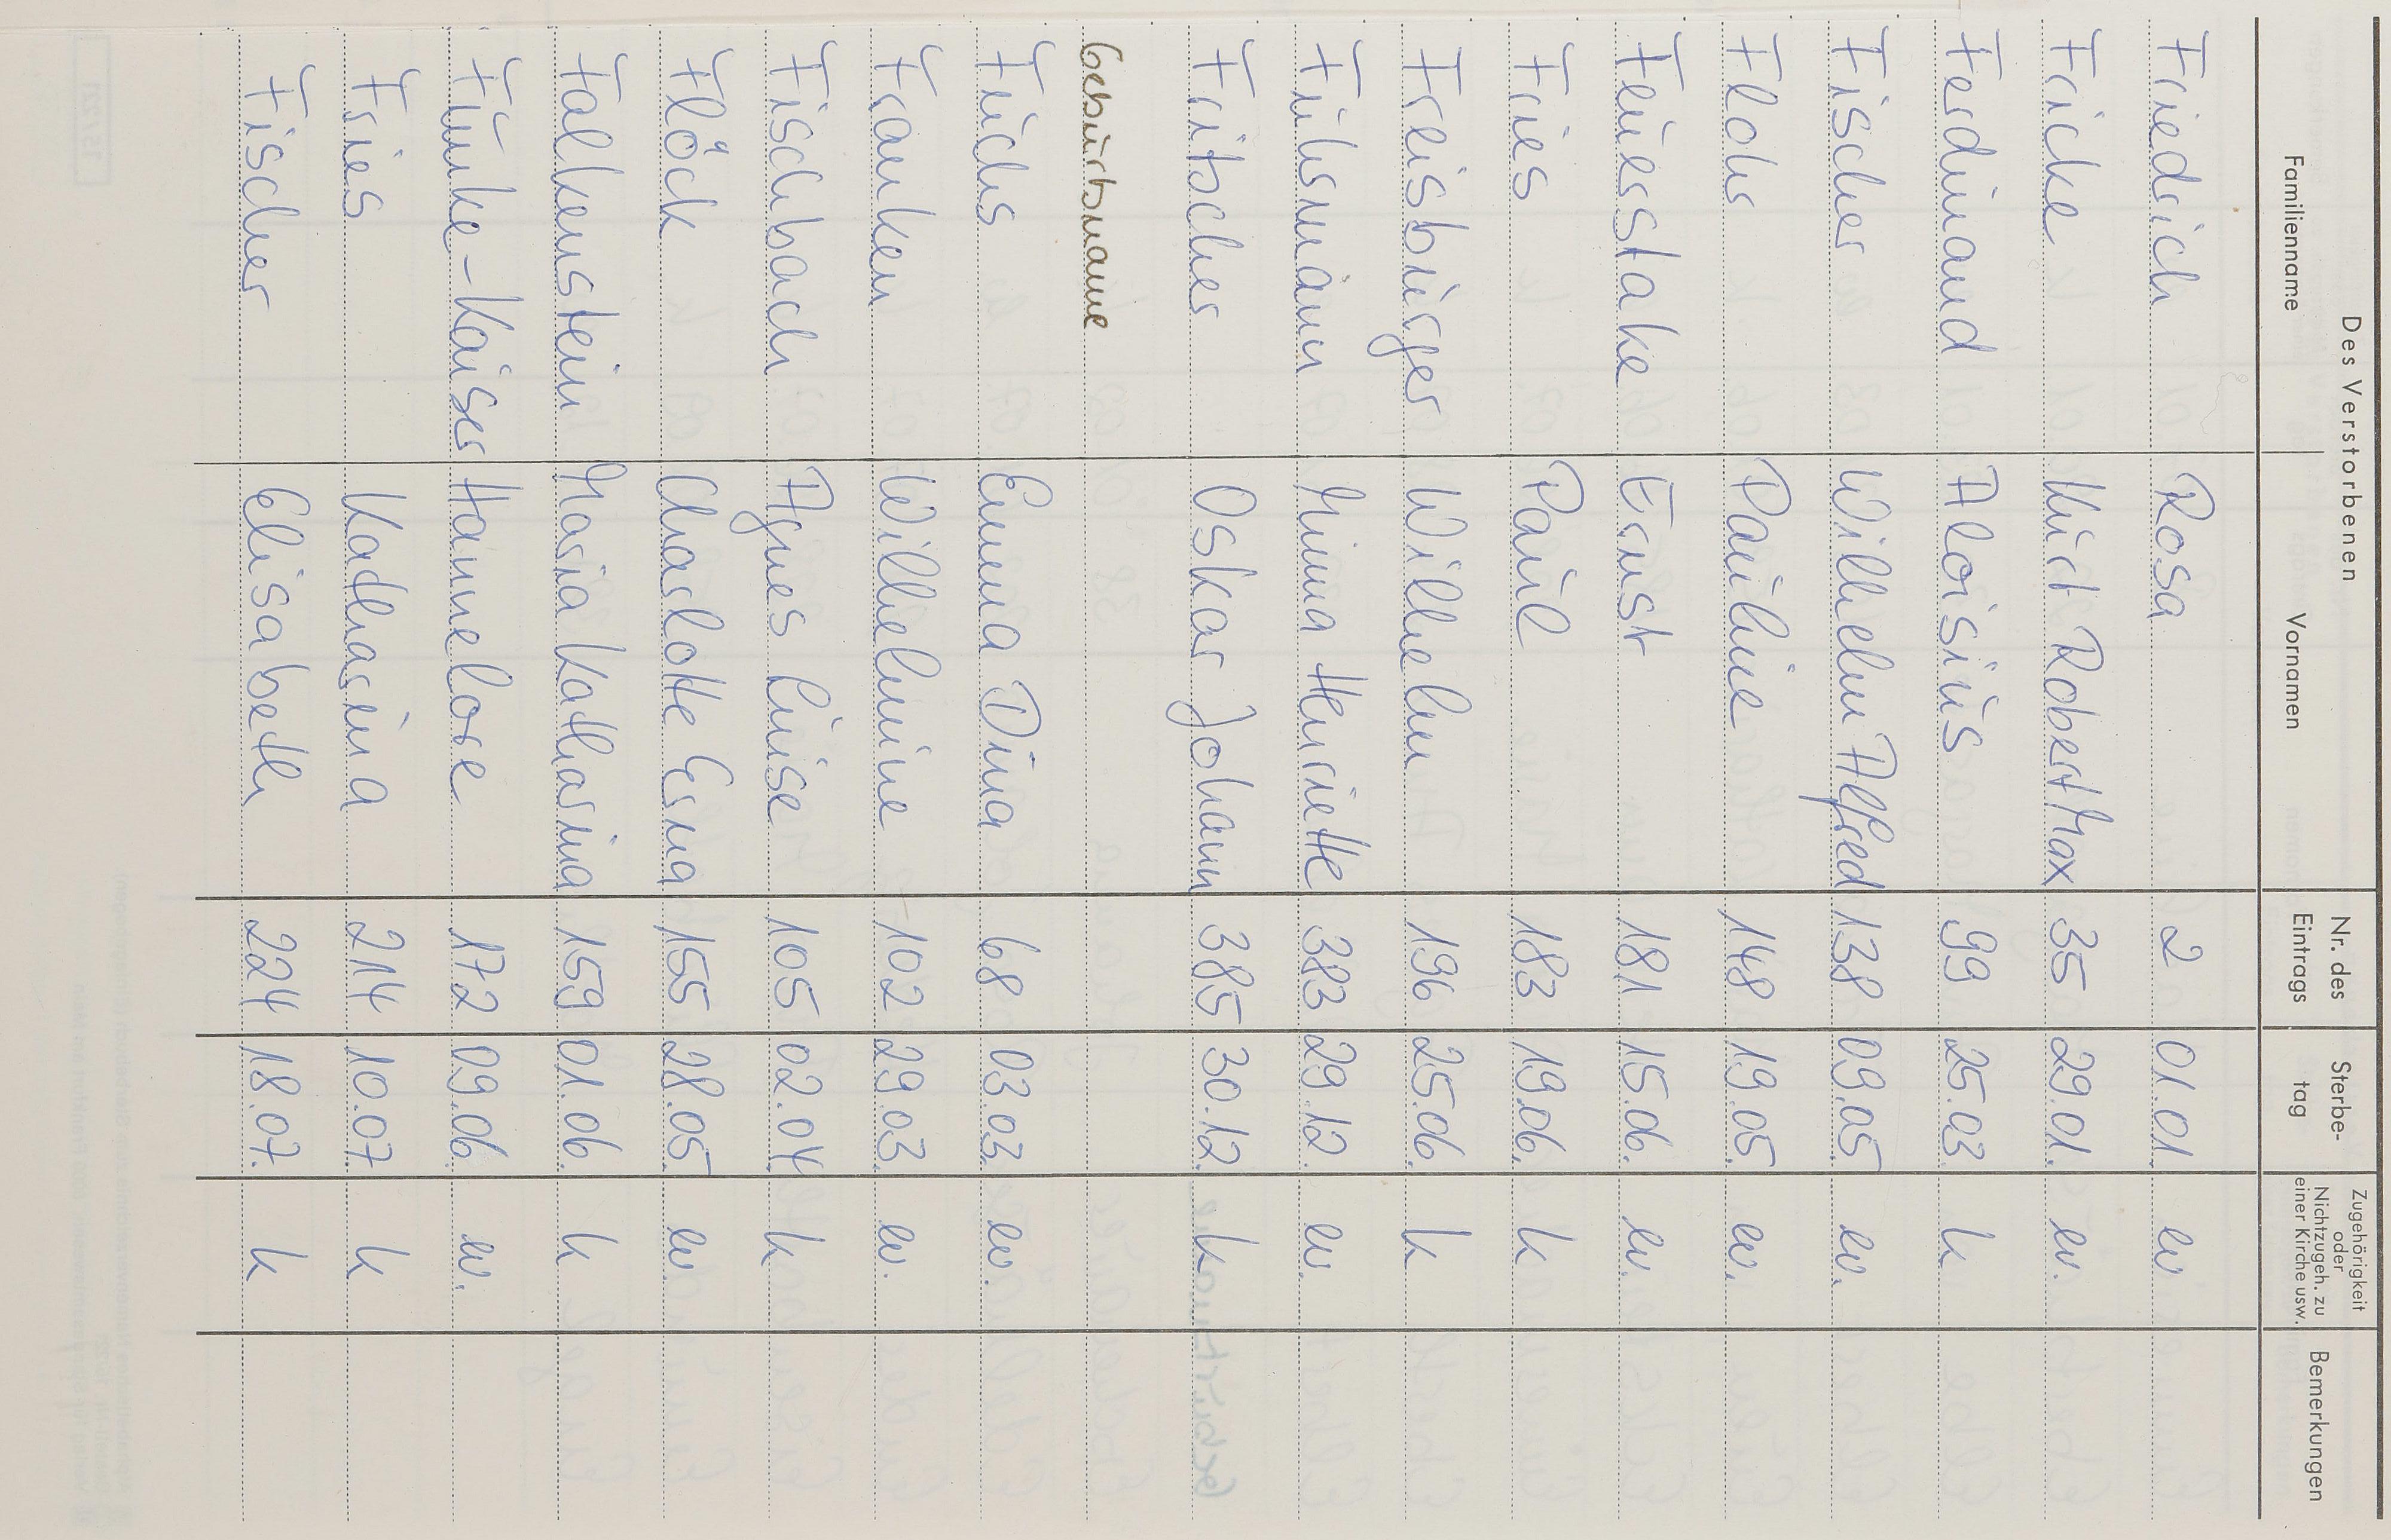 Des Verstorbenen
Familienname Vornamen Nr. des Eintrags Sterbe-tag Zugehörigkeit oder Nichtzugeh. zu einer Kirche usw. Bemerkungen
Friedrich Rosa 2 01.01. ev
Fricke Kurt Robert Max 35 29.01. ev.
Ferdinand Aloisius 99 25.03. k
Fischer Wilhelm Alfred 138 09.05. ev.
Flohr Pauline 148 19.05. ev.
Feuerstake Ernst 181 15.06. ev.
Fries Paul 183 19.06. k
Freisbürger Wilhelm 196 25.06. k
Fuhrmann Minna Henriette 383 29.12. ev.
Fritscher Oskar Johann 385 30.12. k
Geburtsname
Fuchs Emma Dina 68 03.03. ev.
Franken Wilhelmine 102 29.03. ev.
Fischbach Agnes Luise 105 02.04. k
Flöck Charlotte Erna 155 28.05. ev.
Falkenstein Maria Katharina 159 01.06. k
Funke-Kaiser Hannelore 172 09.06. ev.
Fries Katharina 214 10.07. k
Fischer Elisabeth 224 18.07. k